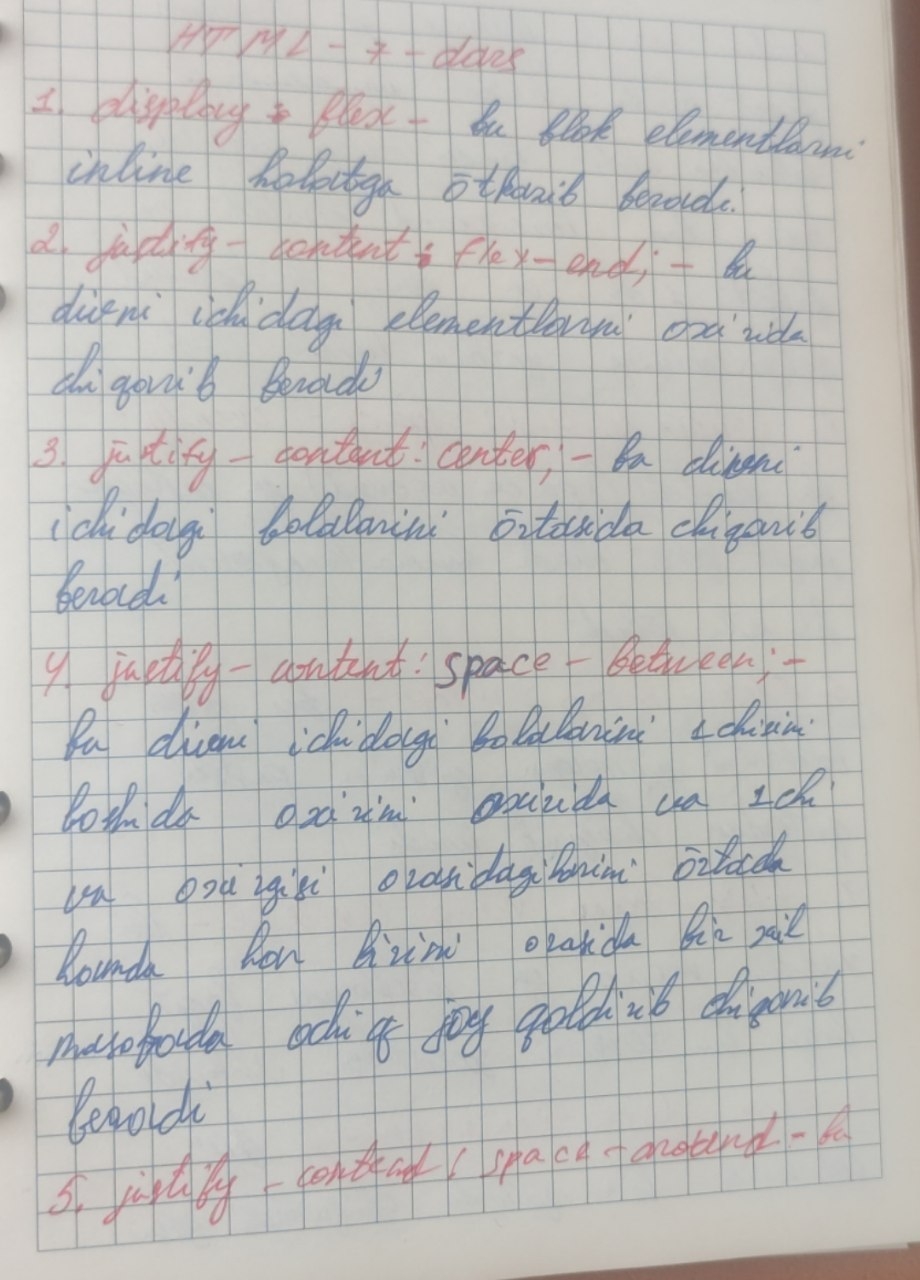 HTML - 7 - dars
1. display : flex - bu blok elementlarni
inline holatga ōtkazib beradi.
2. justify - content : flex - end; - bu
divni ichidagi elementlarni oxirida
chiqarib beradi
3. justify - content : center; - bu divni
ichidagi bolalarini ōrtasida chiqarib
beradi
4. justify - content : space - between; -
bu divni ichidagi bolalarini 1chisini
boshida oxirini oxirida va 1chi
va oxirgisi orasidagilarini ōrtada
hamda har birini orasida bir xil
masofada ochiq joy qoldirib chiqarib
beradi
5. justify - contend : space - around - bu